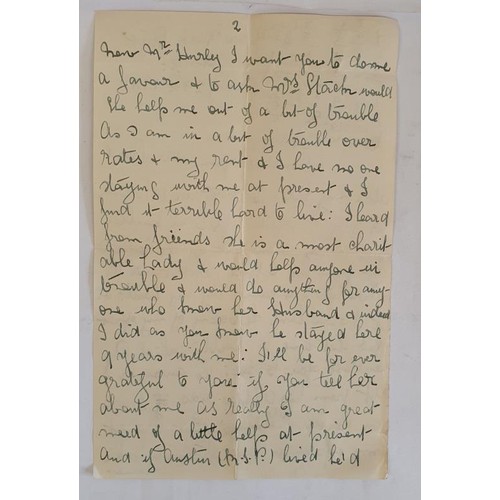 2
now Mr Hurley I want you to do me
a favour & to ask Mrs Stack would
she help me out of a bit of trouble
As I am in a bit of trouble over
rates & my rent & I have no one
staying with me at present & I
find it terrible hard to live: I heard
from friends she is a most charit
able Lady & would help anyone in
trouble & would do anything for any-
one who knew her Husband & indeed
I did as you know he stayed here
9 years with me: I'll be for ever
grateful to you if you tell her
about me as really I am great
need of a little help at present
And if Austin (R.I.P.) lived he'd